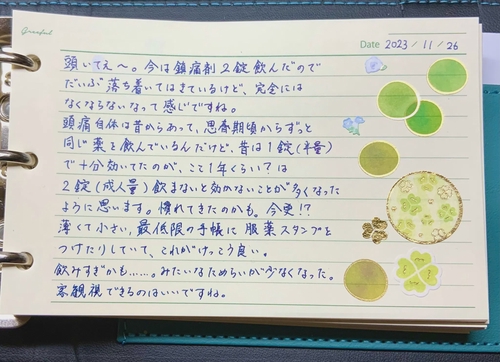 Graceful
Date 2023/11/26
頭いてえ〜。今は鎮痛剤2錠飲んだので
だいぶ落ち着いてはきているけど、完全には
なくならないなって感じですね。
頭痛自体は昔からあって、思春期頃からずっと
同じ薬を飲んでいるんだけど、昔は1錠(半量)
で十分効いてたのが、ここ1年くらい?は
2錠(成人量)飲まないと効かないことが多くなった
ように思います。慣れてきたのかも。今更!?
薄くて小さい、最低限の手帳に服薬スタンプを
つけたりしていて、これがけっこう良い。
飲みすぎかも……。みたいなためらいが少なくなった。
客観視できるのはいいですね。